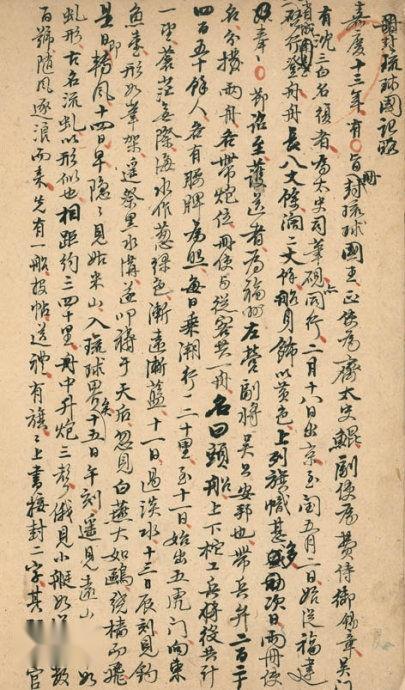 冊封琉球國記略
嘉慶十三年有旨冊封琉球國王正使為齊太史鯤副使為費侍御錫章吳門
有沈三白名復者為太史司筆硯同行二月十八日出京至閏五月二日始從福建
省城南臺登舟舟長八丈餘濶二丈餘船身飾以黃色上列旗幟甚多次日兩冊使
奉節詔至護送者為福州左營副將吳公安邦也帶兵弁二百十
名分撥兩舟各帶炮位冊使與從客共一舟名曰頭船上下柁工兵將役共計
四百五十餘人各有腰牌為照每日乘潮行一二十里至十一日始出五虎門向東
一望蒼茫無際海水作葱綠色漸遠漸藍十一日過淡水十三日辰刻見釣
魚臺形如筆架遙祭黑水溝遂叩禱于天后忽見白燕大如鷗繞檣而飛
是日即轉風十四日早隱隱見姑米山入琉球界矣十五日午刻遙見遠山如
虬形古名流虬以形似也相距約三四十里舟中升炮三聲俄見小艇如數
百號隨風逐浪而來先有一船投帖送禮有旗旗上書接封二字其官